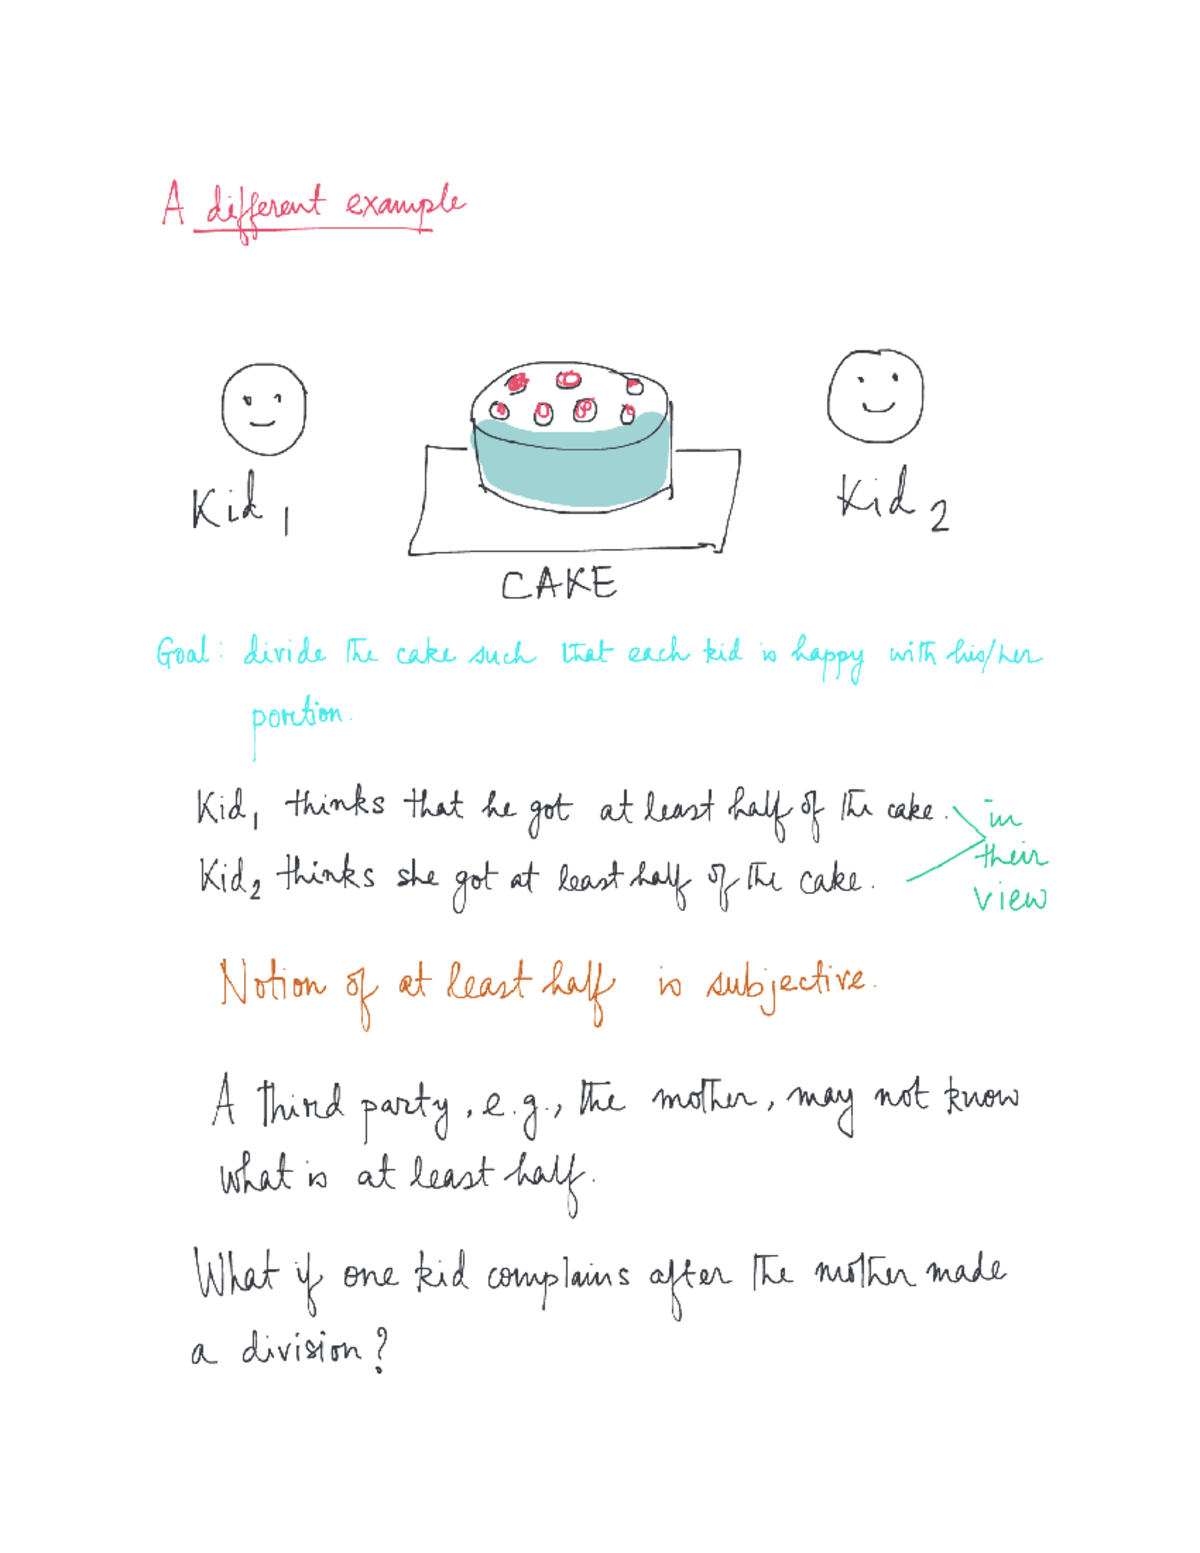 A different example
Kid 1
Kid 2
CAKE
Goal: divide the cake such that each kid is happy with his/her
portion.
Kid1 thinks that he got at least half of the cake.
Kid2 thinks she got at least half of the cake.
in
their
view
Notion of at least half is subjective.
A third party, e.g., the mother, may not know
what is at least half.
What if one kid complains after the mother made
a division?